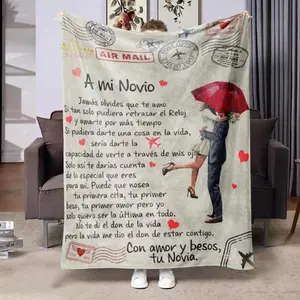 AIR MAIL
A mi Novio
Jamás olvides que te amo
Si tan solo pudiera retrasar el Reloj
y amarte por más tiempo
Si pudiera darte una cosa en la vida,
sería darte la
capacidad de verte a través de mis ojos
Solo así te darías cuenta
de lo especial que eres
para mi. Puede que nosea
tu primera cita, tu primer
beso, tu primer amor pero yo
solo quiero ser la última en todo.
No te di el don de la vida
pero la vida me dio el don de estar contigo.
Con amor y besos,
tu Novia.